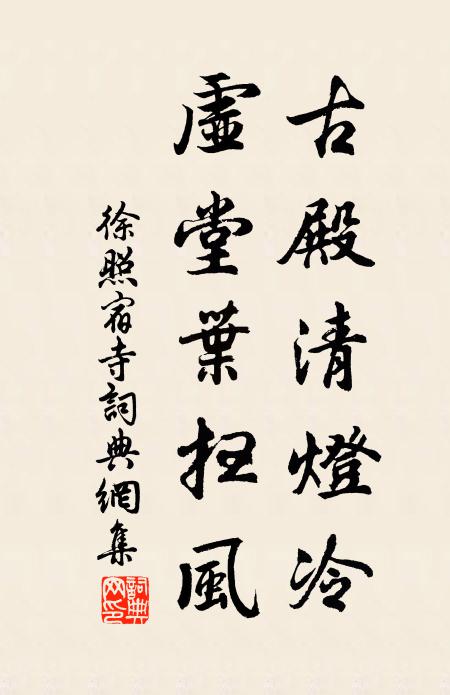 古殿清燈冷
虛堂葉掃風
徐照宿寺詞典網集
詞典網印